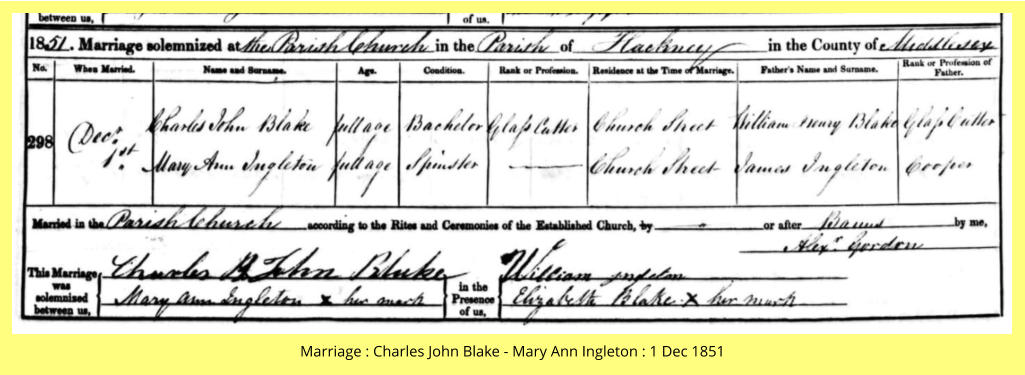 between us, of us.
1851. Marriage solemnized at the Parish Church in the Parish of Hackney in the County of Middlesex
No. When Married. Name and Surname. Age. Condition. Rank or Profession. Residence at the Time of Marriage. Father's Name and Surname. Rank or Profession of Father.
298 Decr 1st Charles John Blake full age Bachelor Glass Cutter Church Street William Henry Blake Glass Cutter
Mary Ann Ingleton full age Spinster Church Street James Ingleton Cooper
Married in the Parish Church according to the Rites and Ceremonies of the Established Church, by or after Banns by me,
Alexr Gordon
This Marriage was solemnized between us, Charles B John Blake in the Presence of us, William
Mary Ann Ingleton x her mark Elizabeth Blake x her mark
Marriage : Charles John Blake - Mary Ann Ingleton : 1 Dec 1851